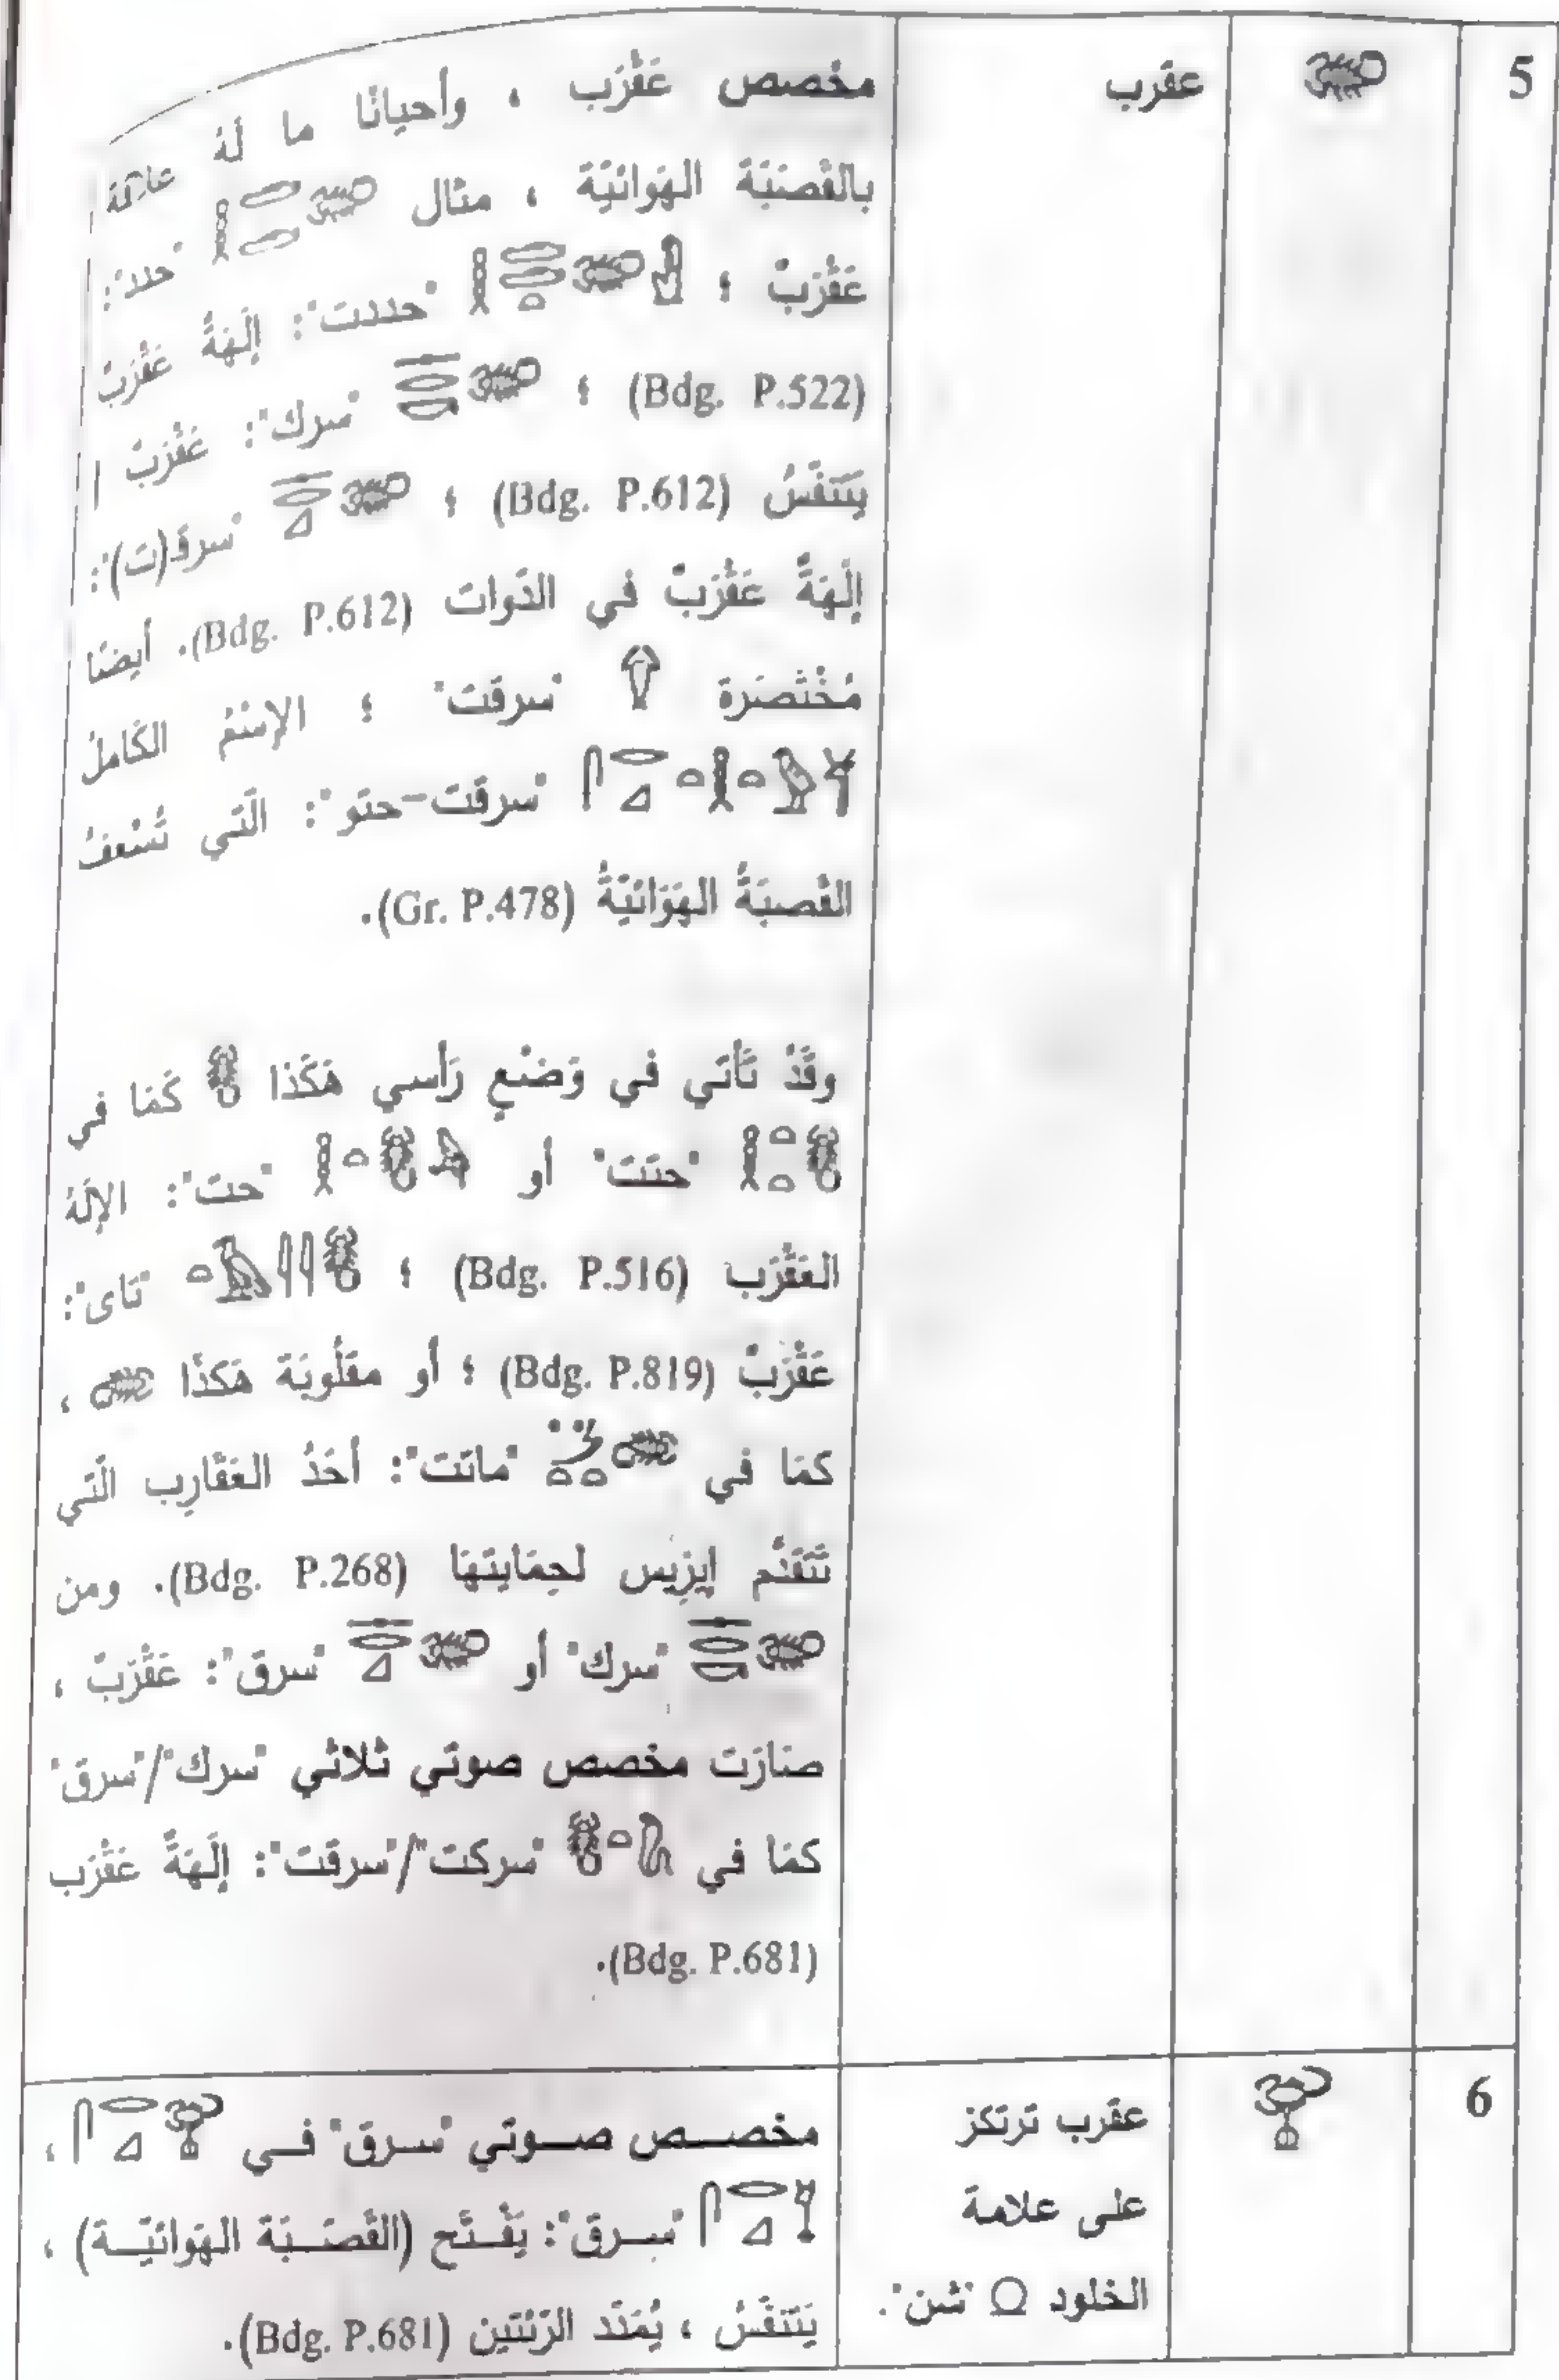 5
عقرب
مخصص عَقْرَب ، وأحيانًا ما لَهُ علاقة
بالقَصَبَة الهَوائيَّة ، مثال "حدد":
عَقْرَبٌ ؛ "حددت": إلَهَةٌ عَقْرَبٌ
(Bdg. P.522) ؛ "سرك": عَقْرَبٌ ا
يَتَنَفَّسُ (Bdg. P.612) ؛ "سرقـ(ت)":
إلَهَةٌ عَقْرَبٌ في الدَّوات (Bdg. P.612). أيضًا
مُخْتَصَرة "سرقت" ؛ الإسْمُ الكَاملُ
"سرقت-حتو": الَّتي تُسْعفُ
القَصبَةُ الهَوَائيَّةُ (Gr. P.478).
وقَدْ تَأتي في وَضْعٍ رَأسي هَكَذا كَمَا في
"حتت" أو "حت": الإلَهُ
العَقْرَب (Bdg. P.516) ؛ "تاى":
عَقْرَبٌ (Bdg. P.819) ؛ أو مقلُوبَة هَكذَا ،
كمَا في "ماتت": أحَدُ العَقَارِب الَّتي
تَتَقَدَّم إيزِيس لحِمَايتهَا (Bdg. P.268). ومن
"سرك" أو "سرق": عَقْرَبٌ ،
صَارَت مخصص صوتي ثلاثي "سرك"/"سرق"
كمَا في "سركت"/"سرقت": إلَهَةٌ عَقْرَب
(Bdg. P.681).
6
عقرب ترتكز
على علامة
الخلود Ω "شن".
مخصـص صـوتي "سرق" فـي ،
"سـرق": يَفْـتَح (القَصَـبَة الهَوائيَّـة) ،
يَتَنَفَّسُ ، يُمَدِّد الرِّئتين (Bdg. P.681).